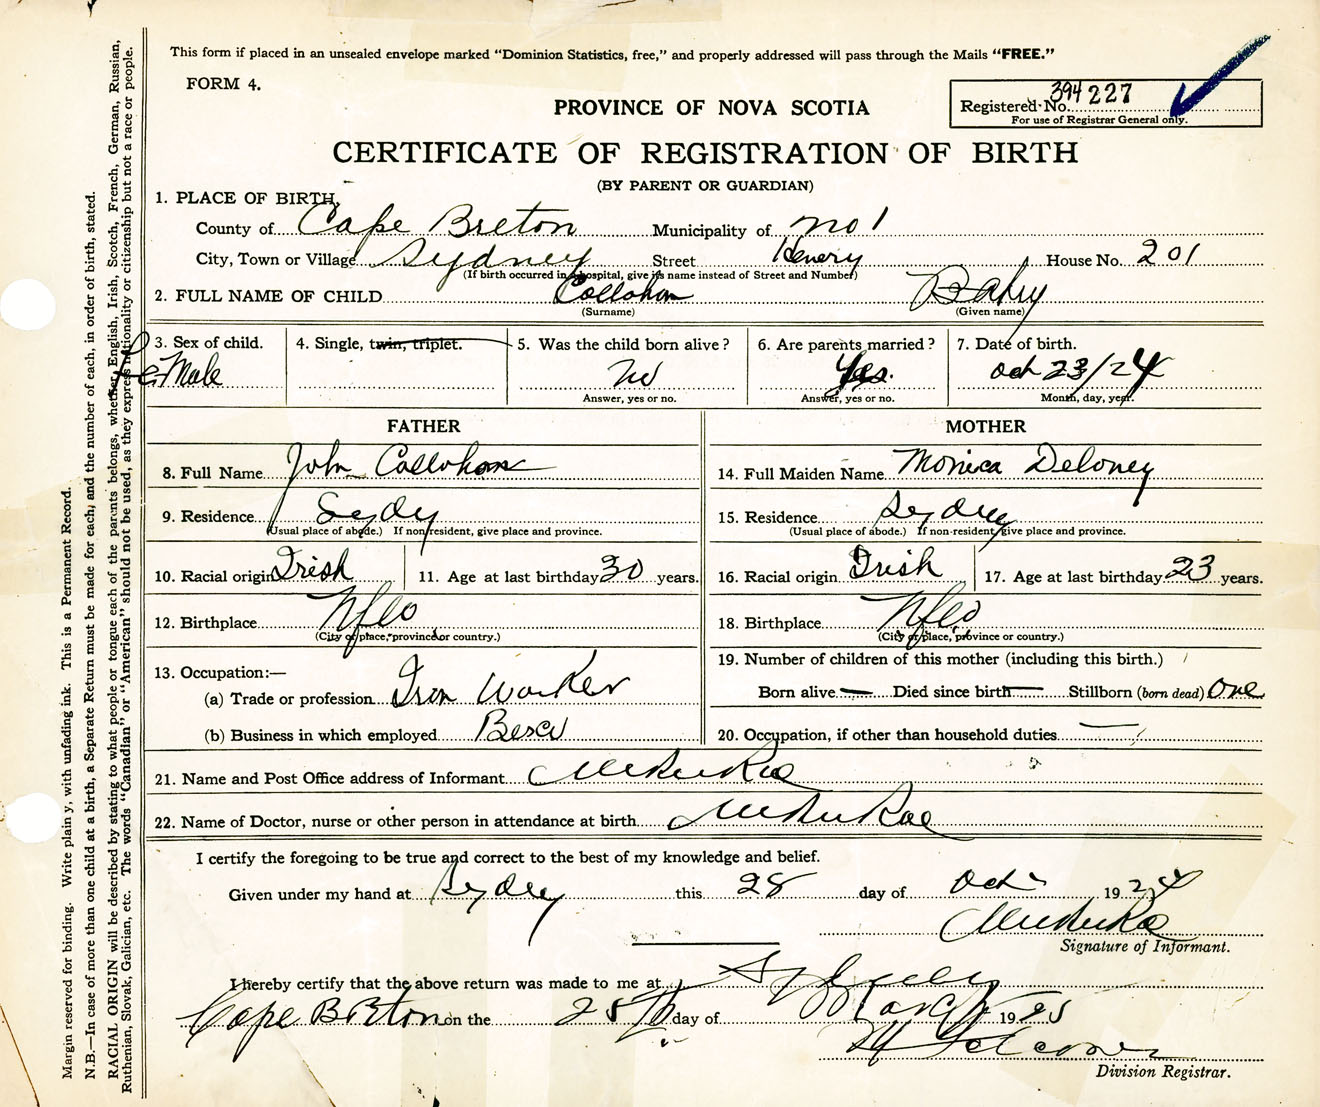 This form if placed in an unsealed envelope marked "Dominion Statistics, free," and properly addressed will pass through the Mails "FREE."
FORM 4.
Registered No. 394227
For use of Registrar General only.
PROVINCE OF NOVA SCOTIA
CERTIFICATE OF REGISTRATION OF BIRTH
(BY PARENT OR GUARDIAN)
1. PLACE OF BIRTH,
County of Cape Breton Municipality of no 1
City, Town or Village Sydney Street Henery House No. 201
(If birth occurred in a hospital, give its name instead of Street and Number)
2. FULL NAME OF CHILD Callahan Baby
(Surname) (Given name)
3. Sex of child. 4. Single, twin, triplet. 5. Was the child born alive? 6. Are parents married? 7. Date of birth.
FeMale No Yes. Oct 23/24
Answer, yes or no. Answer, yes or no. Month, day, year.
FATHER MOTHER
8. Full Name John Callahan 14. Full Maiden Name Monica Deloney
9. Residence Sydy 15. Residence Sydney
(Usual place of abode.) If non-resident, give place and province. (Usual place of abode.) If non-resident, give place and province.
10. Racial origin Irish 11. Age at last birthday 30 years. 16. Racial origin Irish 17. Age at last birthday 23 years.
12. Birthplace Nfld 18. Birthplace Nfld
(City or place, province or country.) (City or place, province or country.)
13. Occupation:— 19. Number of children of this mother (including this birth.)
(a) Trade or profession Iron Worker Born alive — Died since birth — Stillborn (born dead) One
(b) Business in which employed Besco 20. Occupation, if other than household duties —
21. Name and Post Office address of Informant
22. Name of Doctor, nurse or other person in attendance at birth
I certify the foregoing to be true and correct to the best of my knowledge and belief.
Given under my hand at Sydney this 28 day of Oct 1924
Signature of Informant.
I hereby certify that the above return was made to me at Sydney
Cape Breton on the 28th day of March 1925
Division Registrar.
Margin reserved for binding. Write plainly, with unfading ink. This is a Permanent Record.
N.B.—In case of more than one child at a birth, a Separate Return must be made for each, and the number of each, in order of birth, stated.
RACIAL ORIGIN will be described by stating to what people or tongue each of the parents belongs, whether English, Irish, Scotch, French, German, Russian,
Ruthenian, Slovak, Galician, etc. The words "Canadian" or "American" should not be used, as they express nationality or citizenship but not a race or people.